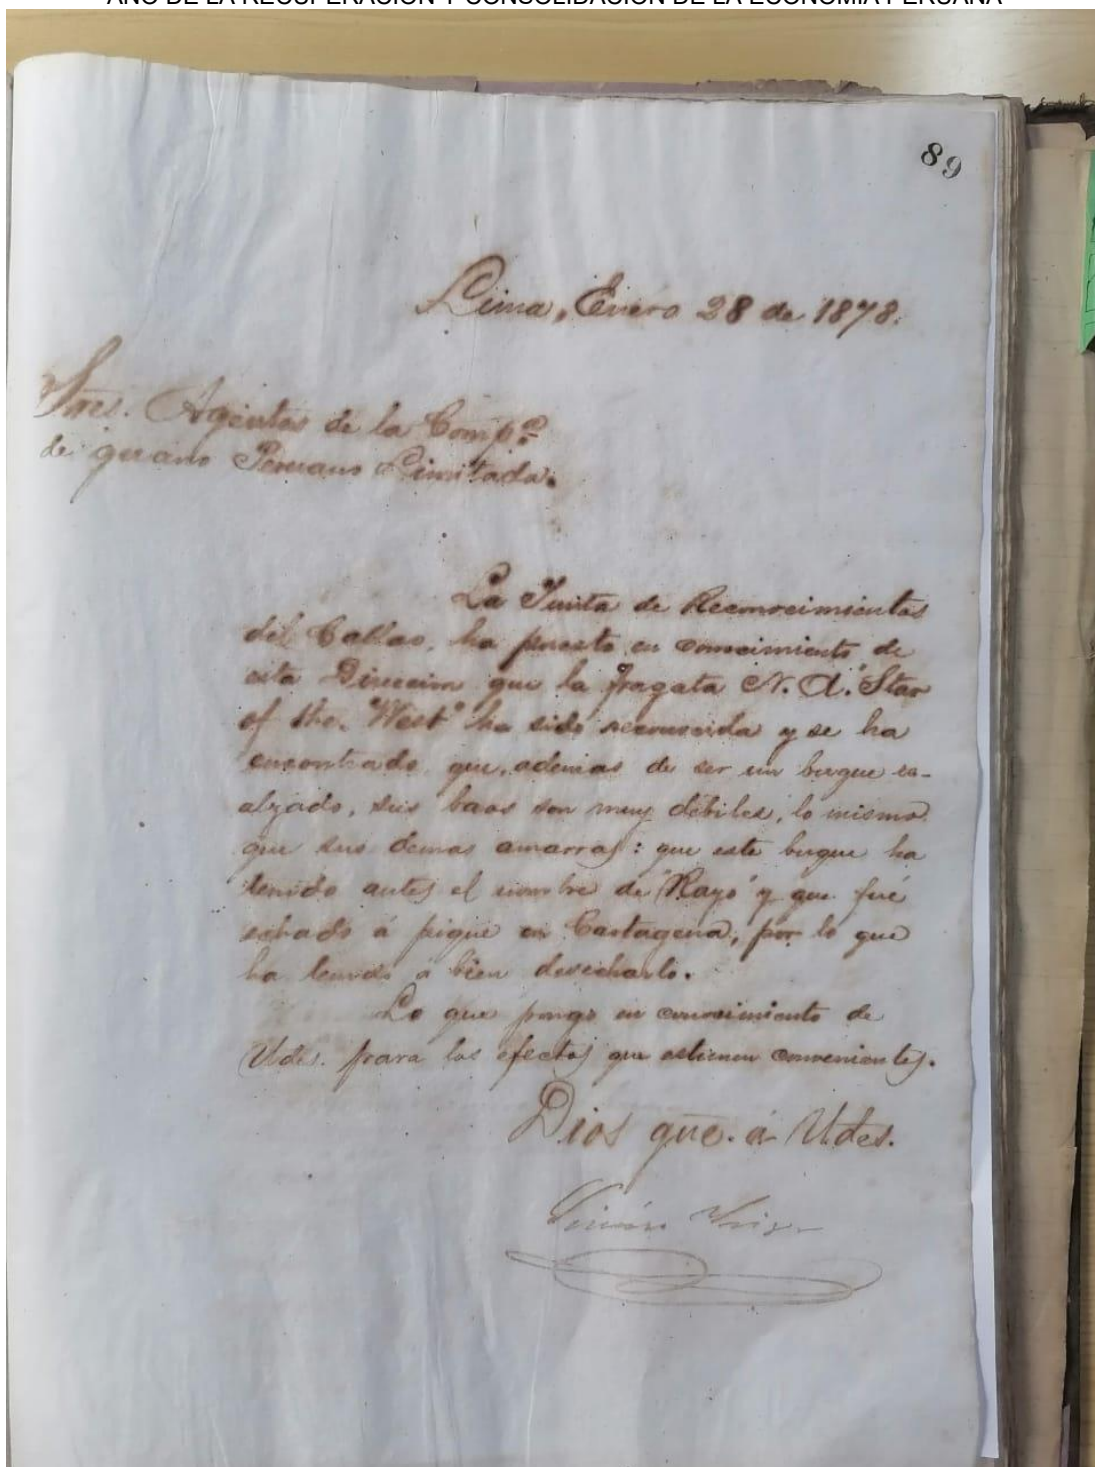 AÑO DE LA RECUPERACIÓN Y CONSOLIDACIÓN DE LA ECONOMÍA PERUANA
89
Lima, Enero 28 de 1878.
Sres. Agentes de la Compª
de guano Peruano Limitada.
La Junta de Reconocimientos
del Callao, ha puesto en conocimiento de
esta Direccion que la fragata N. A. "Star
of the West" ha sido reconocida y se ha
encontrado que, ademas de ser un buque
alzado, sus baos son muy débiles, lo mismo
que sus demas amarras: que este buque ha
tenido antes el nombre de "Rayo" y que fué
echado á pique en Cartagena, por lo que
ha tenido á bien desecharlo.
Lo que pongo en conocimiento de
Udes. para los efectos que estimen convenientes.
Dios gue. á Udes.